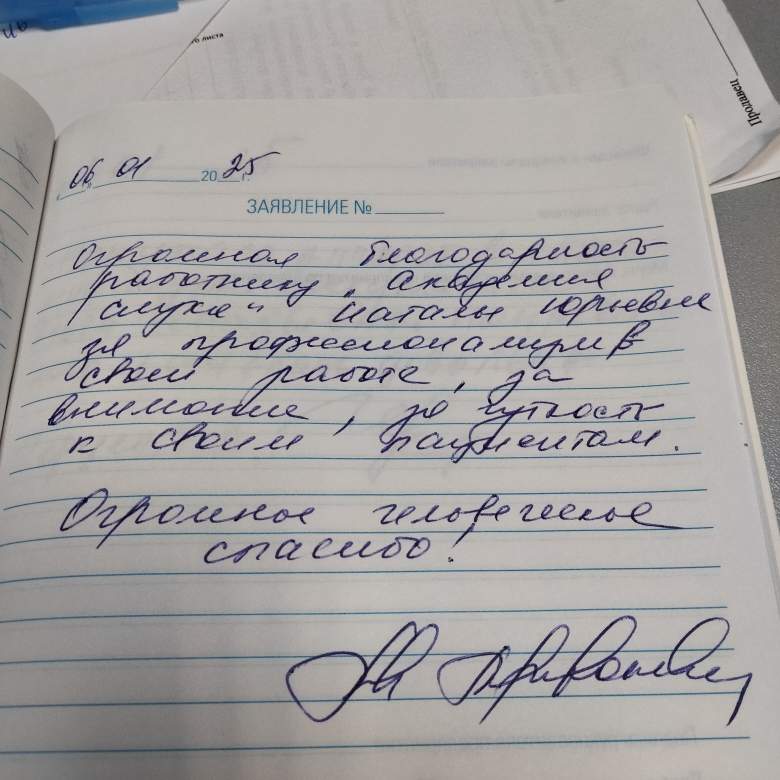 го листа
Продавец
„06" 01 2025 г.
ЗАЯВЛЕНИЕ №
Огромная благодарность
работнику „Академия
слуха" Наталье Юрьевне
за профессионализм в
своей работе, за
внимание, за чуткость
к своим пациентам.
Огромное человеческое
спасибо!